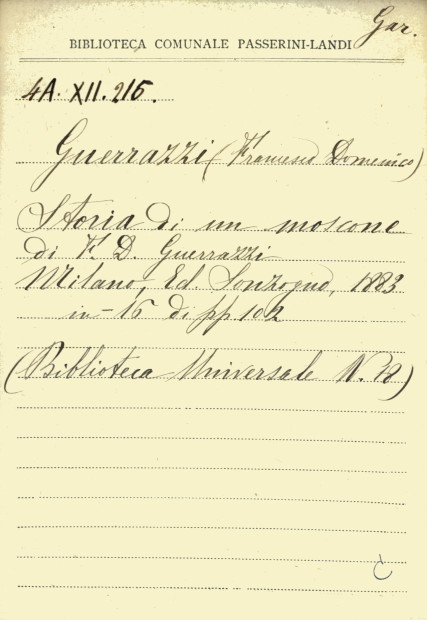 Gar.
BIBLIOTECA COMUNALE PASSERINI-LANDI
4A. XII. 215.
Guerrazzi (Francesco Domenico)
Storia di un moscone
di F. D. Guerrazzi
Milano, Ed. Sonzogno, 1883
in-16 di pp 102
(Biblioteca Universale N.
C